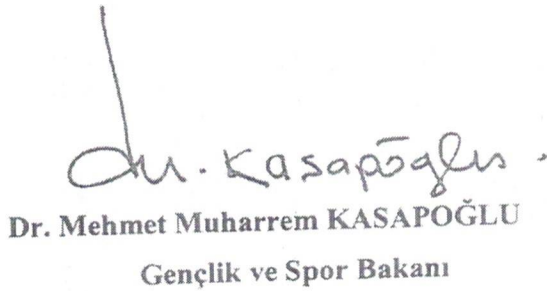 M. Kasapoğlu.
Dr. Mehmet Muharrem KASAPOĞLU
Gençlik ve Spor Bakanı